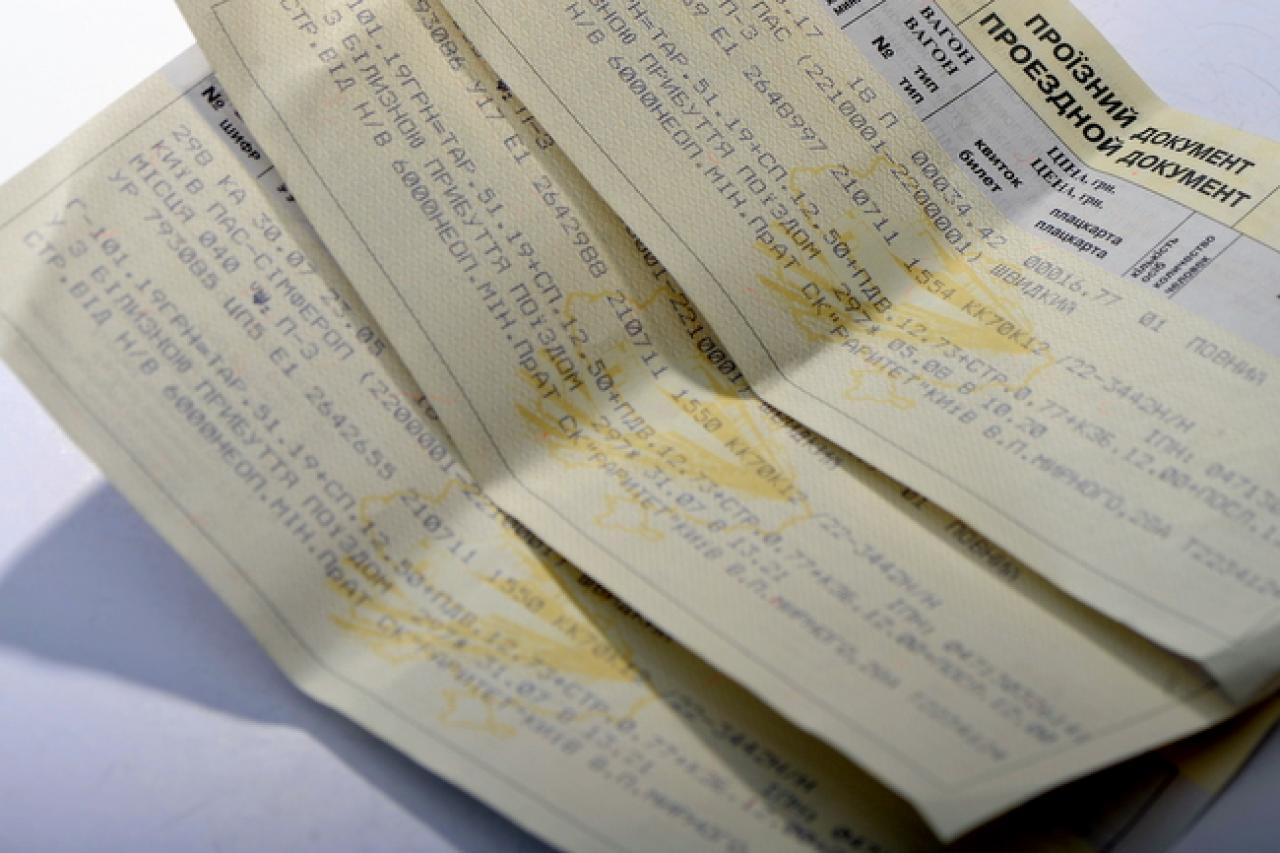 ПРОЇЗНИЙ ДОКУМЕНТ
ПРОЕЗДНОЙ ДОКУМЕНТ
ВАГОН
ВАГОН
№ ТИП
ТИП
ЦІНА, грн.
ЦЕНА, грн.
квиток
билет
плацкарта
плацкарта
кількість осіб
количество человек
18 П 00034.42 00016.77 01 ПОВНИЙ
ПАС (2210001-2200001) ШВИДКИЙ
П-3
Е1 2648997 210711 1554 КК70К12 /22-3442Н/Н
ТАР.51.19+СП.12.50+ПДВ.12.73+СТР.0.77+КЗБ.12.00+ПОСЛ.12
ПРИБУТТЯ ПОїЗДОМ 297* 05.08 В 10.20
Н/В 6000НЕОП.МІН.ПРАТ СК"РАРИТЕТ"КИЇВ В.П.МИРНОГО,20А
П-3
793086 Е1 2642988 210711 1550 КК70К12 /22-3442Н/Н
101.19ГРН=ТАР.51.19+СП.12.50+ПДВ.12.73+СТР.0.77+КЗБ.12.00+ПОСЛ.12.00
З БІЛИЗНОЮ ПРИБУТТЯ ПОїЗДОМ 297* 31.07 В 13.21
СТР.ВІД Н/В 6000НЕОП.МІН.ПРАТ СК"РАРИТЕТ"КИЇВ В.П.МИРНОГО,20А
№
ШИФР
298 КА 30.07 23.05
КИЇВ ПАС-СІМФЕРОП (2200001-2210001)
МІСЦЯ 040 П-3
УР 793085 ЦП5 Е1 2642655 210711 1550 КК70К12 /22-3442Н/Н
Г-101.19ГРН=ТАР.51.19+СП.12.50+ПДВ.12.73+СТР.0.77+КЗБ.12.00
У З БІЛИЗНОЮ ПРИБУТТЯ ПОїЗДОМ 297* 31.07 В 13.21
СТР.ВІД Н/В 6000НЕОП.МІН.ПРАТ СК"РАРИТЕТ"КИЇВ В.П.МИРНОГО